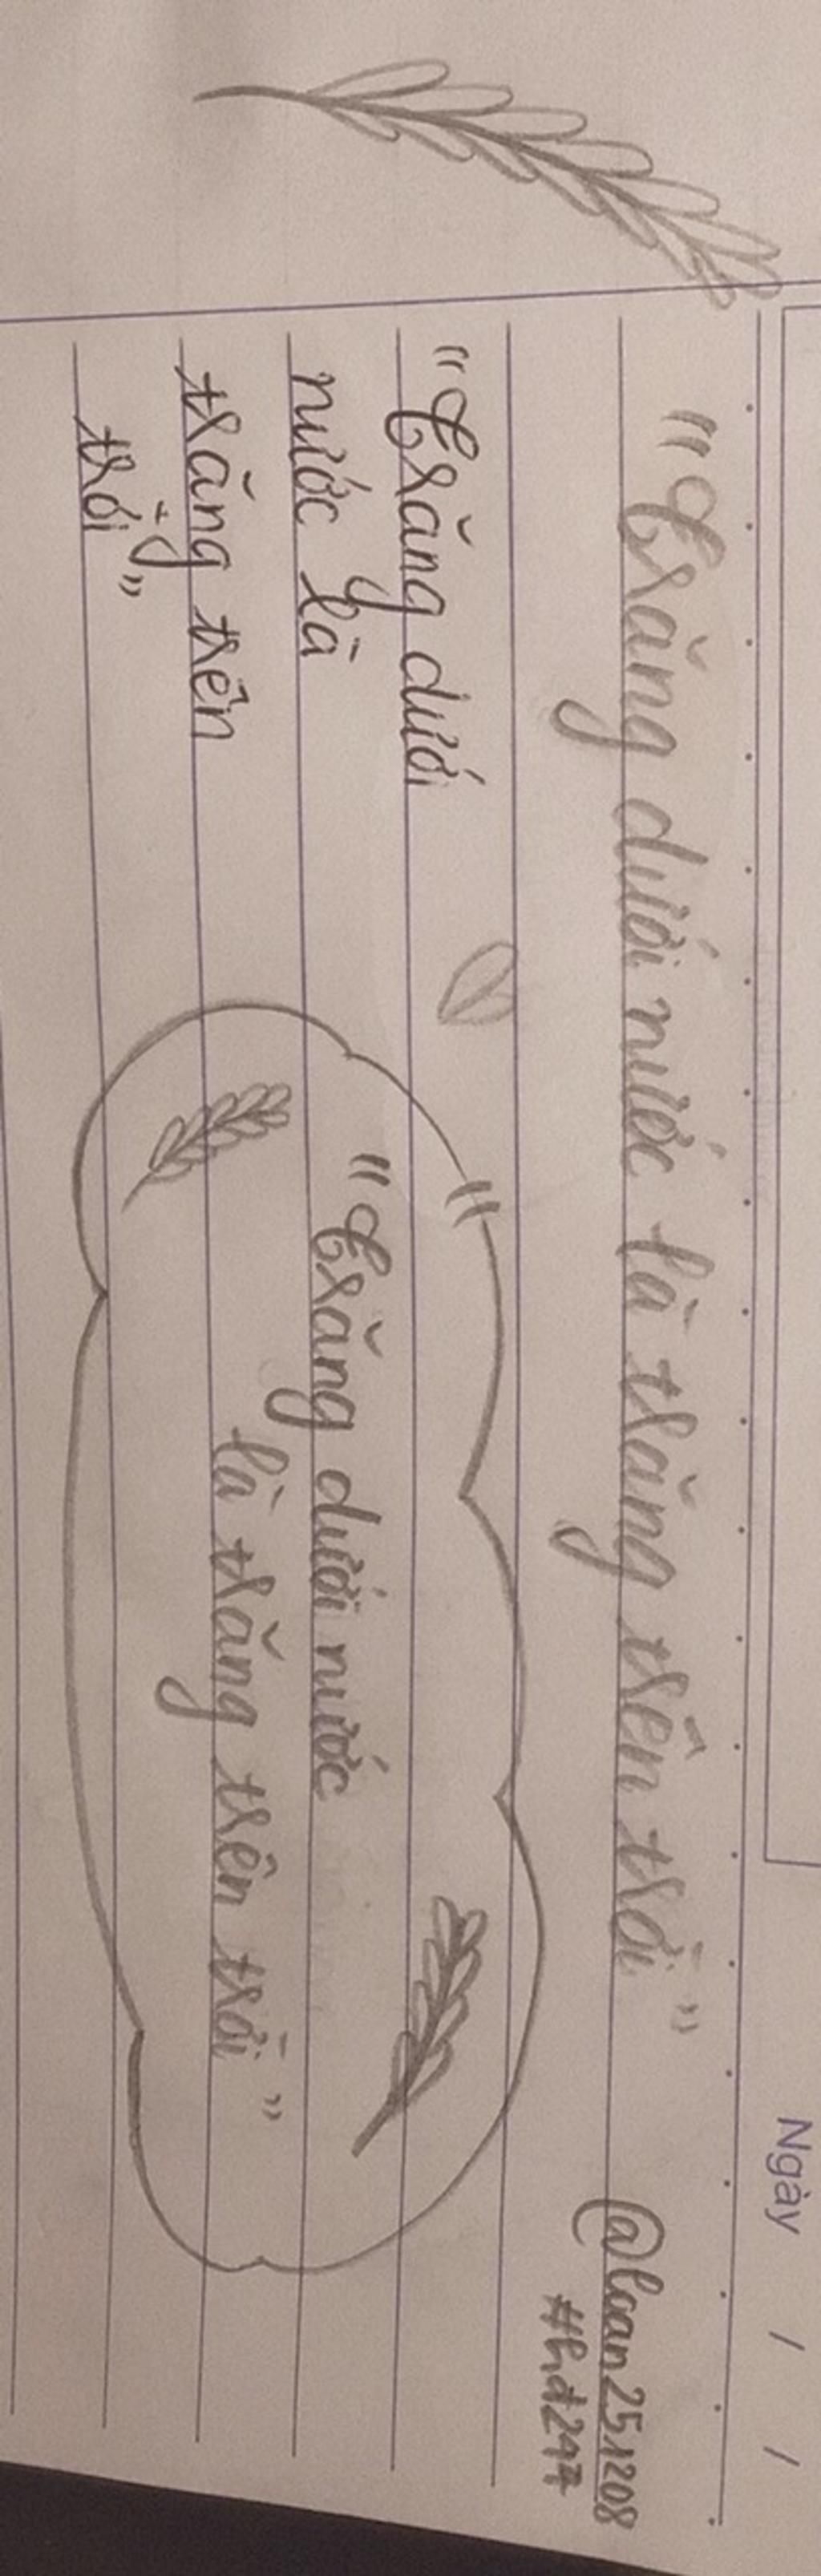 Ngày / /
"Trăng dưới nước là trăng trên trời"
@loan251208
#hd247
"Trăng dưới
nước là
trăng trên
trời"
"Trăng dưới nước
là trăng trên trời"